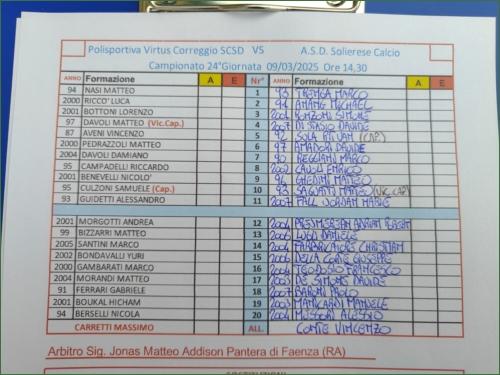 Polisportiva Virtus Correggio SCSD VS A.S.D. Solierese Calcio
Campionato 24°Giornata 09/03/2025 Ore 14,30
ANNO Formazione A E Nr° ANNO Formazione A E
94 NASI MATTEO 1 93 MARCO
2000 RICCO' LUCA 2 94 MICHAEL
2001 BOTTONI LORENZO 3 2004 SIMONE
97 DAVOLI MATTEO (Vic.Cap.) 4 2007 DAVIDE
87 AVENI VINCENZO 5 (CAP.)
2000 PEDRAZZOLI MATTEO 6 97 AMADORI DAVIDE
2004 DAVOLI DAMIANO 7 90 REGGIANI MARCO
95 CAMPADELLI RICCARDO 8 2002 CAVOLI ENRICO
2001 BENEVELLI NICOLO' 9 96 MATTEO
95 CULZONI SAMUELE (Cap.) 10 93 MARCO (VIC. CAP)
93 GUIDETTI ALESSANDRO 11 2007
2001 MORGOTTI ANDREA 12 2004
99 BIZZARRI MATTEO 13 2006 LUGO DANIELE
2005 SANTINI MARCO 14 2004 CHRISTIAN
2002 BONDAVALLI YURI 15 2006 DELLA CORTE GIUSEPPE
2000 GAMBARATI MARCO 16 2004 TEODOSIO FRANCESCO
2004 MORANDI MATTEO 17 2005 DE SIMONE DAVIDE
91 FERRARI GABRIELE 18 2007 BARONI PAOLO
2001 BOUKAL HICHAM 19 2003 MANICARDI MANUELE
94 BERSELLI NICOLA 20 2004 ALESSIO
CARRETTI MASSIMO ALL. CONTE VINCENZO
Arbitro Sig. Jonas Matteo Addison Pantera di Faenza (RA)